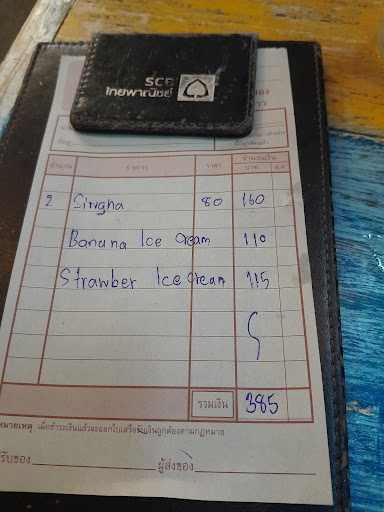 SCB
ไทยพาณิชย์
ที่อยู่
จำนวน รายการ ราคา จำนวนเงิน
บาท ส.ต.
2 Singha 80 160
Banana Ice cream 110
Strawber Ice cream 115
รวมเงิน 385
หมายเหตุ เมื่อชำระเงินแล้วจะออกใบเสร็จรับเงินถูกต้องตามกฎหมาย
รับของ ผู้ส่งของ